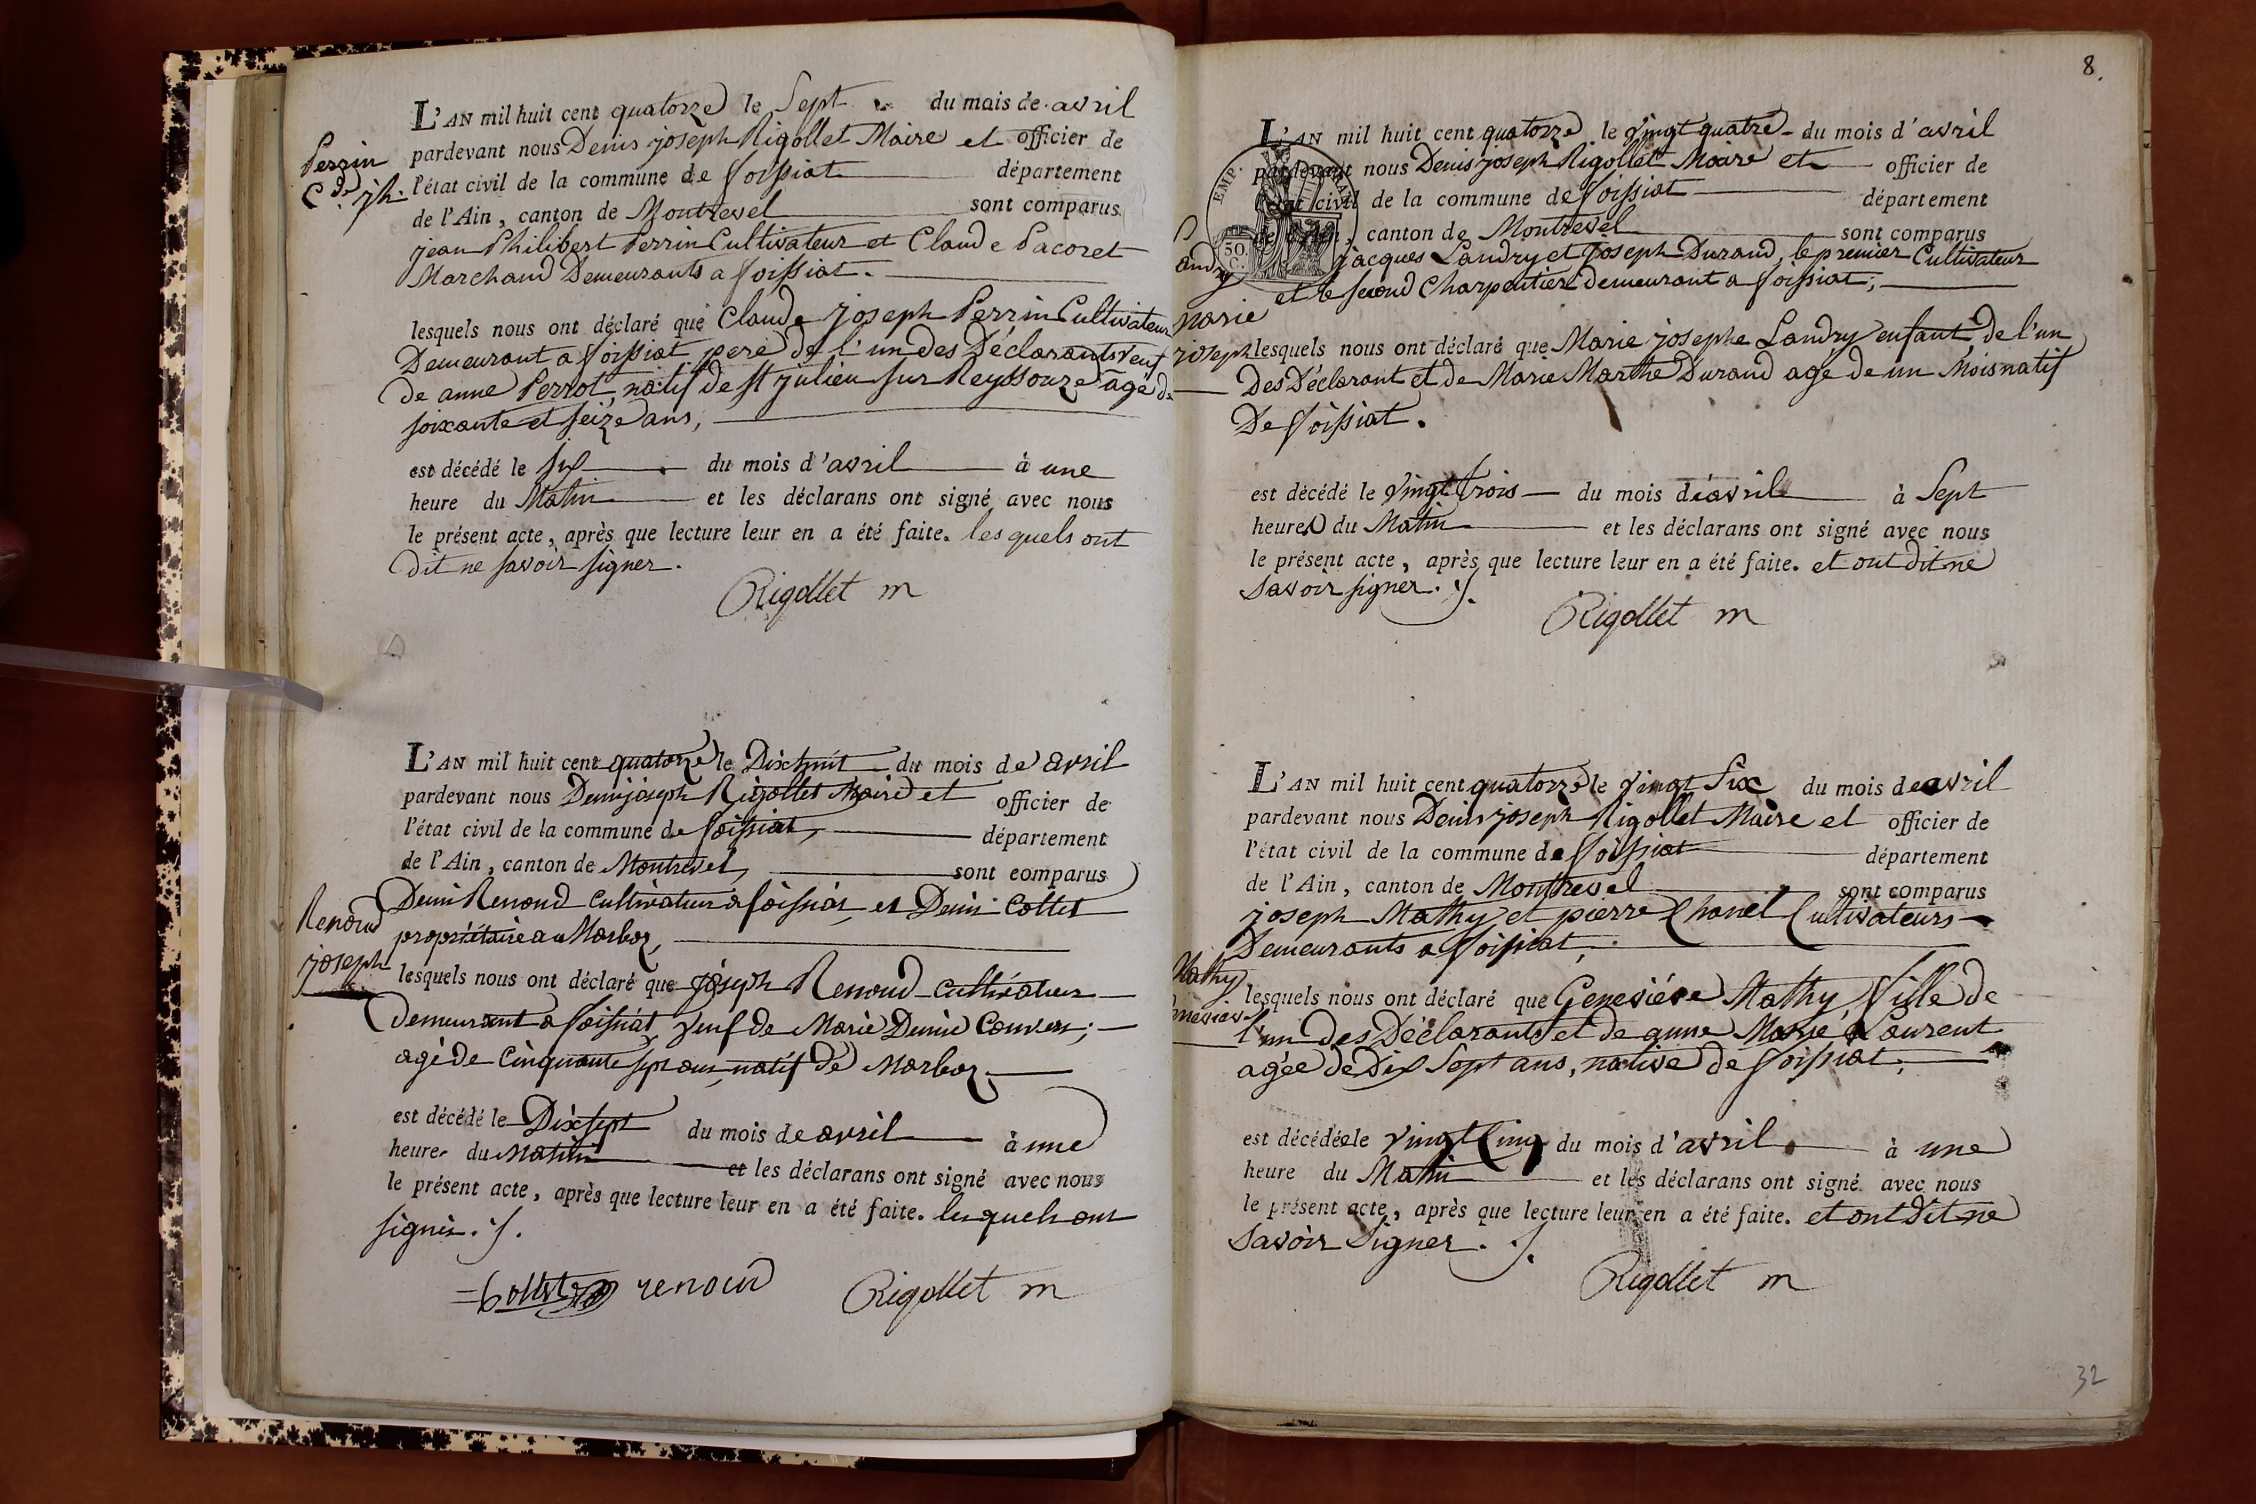 L'AN mil huit cent quatorze le Sept du mois de avril
pardevant nous Denis joseph Rigollet Maire et officier de
Perrin
C.de jh.
l'état civil de la commune de foissiat département
de l'Ain, canton de Montrevel sont comparus
jean Philibert Perrin Cultivateur et Claude Pacoret
Marchand Demeurants a foissiat.
lesquels nous ont déclaré que Claude joseph Perrin Cultivateur
Demeurant a foissiat pere de l'un des Déclarants veuf
de anne Perrot natif de st julien sur Reyssouze agé de
soixante et seize ans,
est décédé le six du mois d'avril à une
heure du Matin et les déclarans ont signé avec nous
le présent acte, après que lecture leur en a été faite. les quels ont
dit ne savoir signer.
Rigollet m
L'AN mil huit cent quatorze le Dixhuit du mois de avril
pardevant nous Denis joseph Rigollet Maire et officier de
l'état civil de la commune de foissiat, département
de l'Ain, canton de Montrevel, sont comparus
Renoud
joseph
Denis Renoud cultivateur a foissiat, et Denis Collet
propriétaire a Marboz,
lesquels nous ont déclaré que joseph Renoud cultivateur
demeurant a foissiat, veuf de Marie Denise Couven;
agé de cinquante sept ans, natif de Marboz.
est décédé le Dixsept du mois de avril à une
heure du Matin et les déclarans ont signé avec nous
le présent acte, après que lecture leur en a été faite. lesquels ont
signés. ./.
Collet renoud Rigollet m
8.
L'AN mil huit cent quatorze le vingt quatre du mois d'avril
pardevant nous Denis joseph Rigollet Maire et officier de
l'état civil de la commune de foissiat département
de l'Ain, canton de Montrevel sont comparus
EMP.
50
C.
Landry
marie
joseph
jacques Landry et joseph Durand, le premier Cultivateur
et le second Charpentier demeurant a foissiat;
lesquels nous ont déclaré que Marie josephe Landry enfant de l'un
Des Déclarant et de Marie Marthe Durand agé de un Mois natif
De foissiat.
est décédé le vingt trois du mois d'avril à Sept
heures du Matin et les déclarans ont signé avec nous
le présent acte, après que lecture leur en a été faite. et ont dit ne
savoir signer. ./.
Rigollet m
L'AN mil huit cent quatorze le vingt Six du mois de avril
pardevant nous Denis joseph Rigollet Maire et officier de
l'état civil de la commune de foissiat département
de l'Ain, canton de Montrevel sont comparus
joseph Mathy et pierre Chanel Cultivateurs
Demeurants a foissiat,
Mathy
Genevieve
lesquels nous ont déclaré que Geneviéve Mathy, fille de
l'un des Déclarants et de anne Marie Laurent
agée de Dix Sept ans, native de foissiat.
est décédée le vingt Cinq du mois d'avril à une
heure du Matin et les déclarans ont signé avec nous
le présent acte, après que lecture leur en a été faite. et ont dit ne
savoir signer. ./.
Rigollet m
32